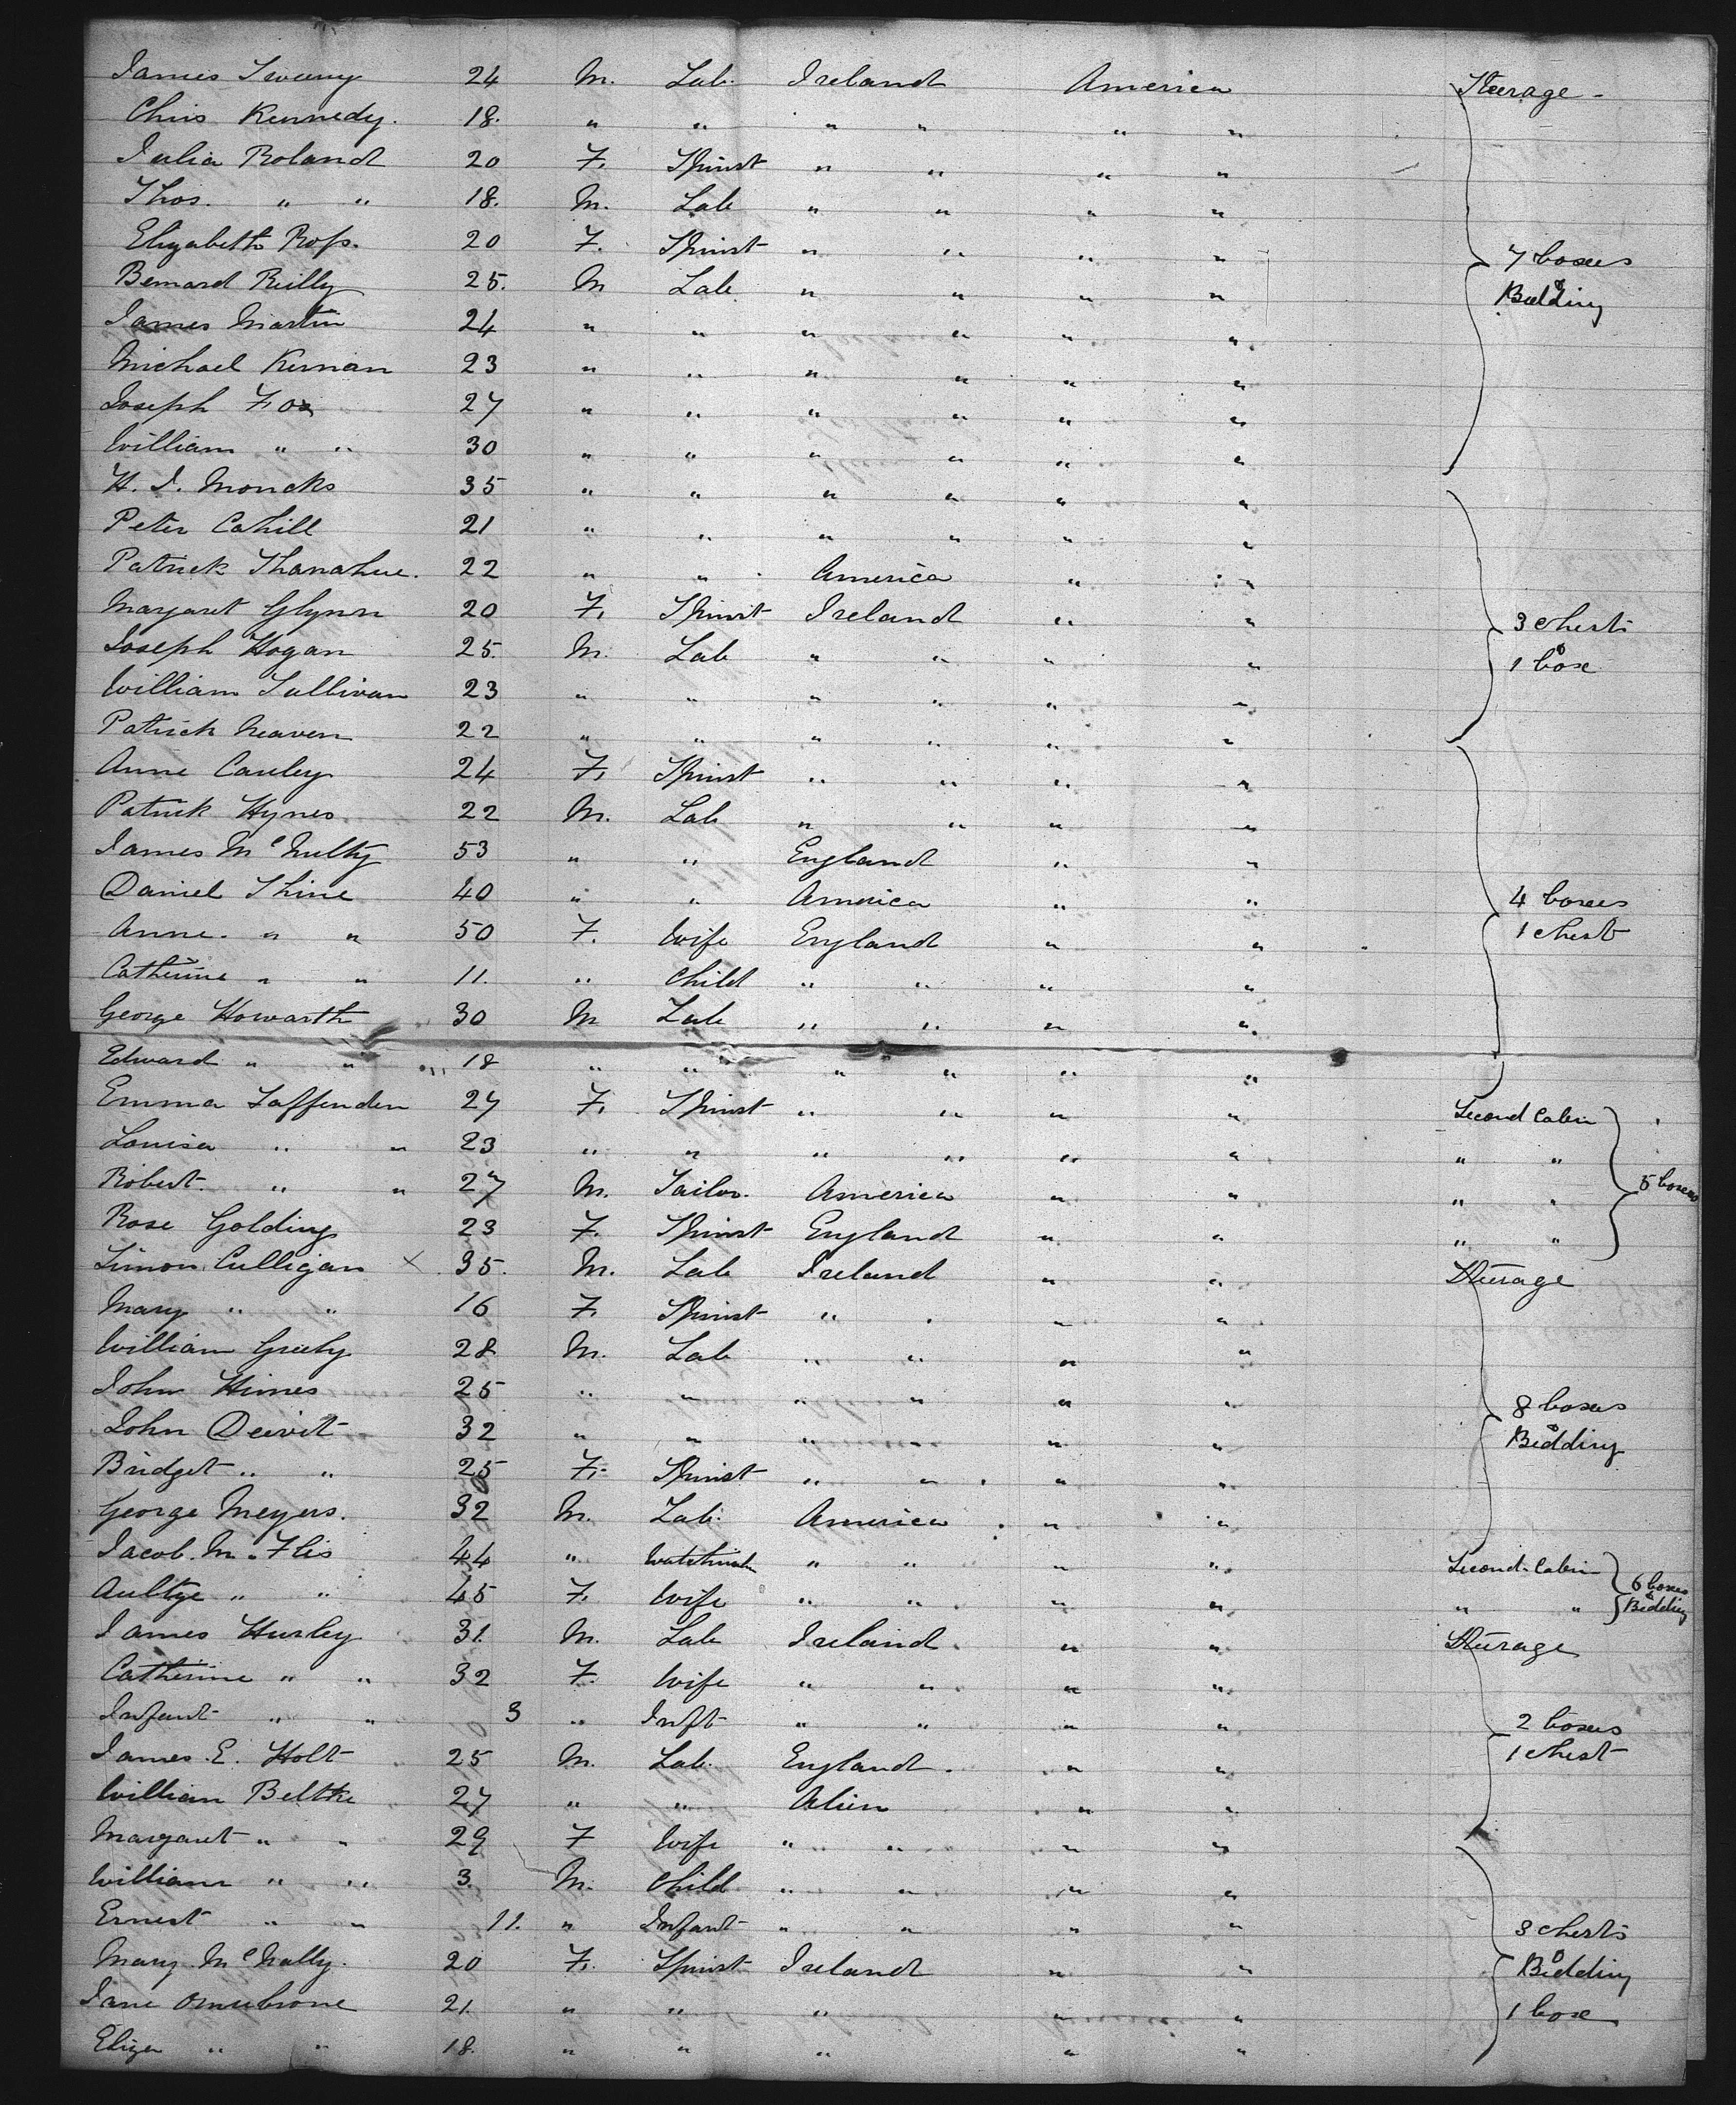 James Sweeny 24 M. Lab. Ireland America Steerage -
Chris Kennedy. 18. " " " " " "
Julia Boland 20 F. Spinst " " " "
Thos. " " 18. M. Lab " " " "
Elizabeth Ross. 20 F. Spinst " " " " 7 boxes
Bernard Reilly 25. M Lab " " " " & Bedding
James Martin 24 " " " " " "
Michael Kernan 23 " " " " " "
Joseph Fox 27 " " " " " "
William " " 30 " " " " " "
H. J. Moncks 35 " " " " " "
Peter Cahill 21 " " " " " "
Patrick Shanahue. 22 " " America " "
Margaret Glynn 20 F. Spinst Ireland " " 3 chests
Joseph Hogan 25. M. Lab " " " " & 1 box
William Sullivan 23 " " " " " "
Patrick Neaven 22 " " " " " "
Anne Cauley 24 F. Spinst " " " "
Patrick Hynes 22 M. Lab " " " "
James McNulty 53 " " England " "
Daniel Shine 40 " " America " " 4 boxes
Anne. " " 50 F. Wife England " " 1 chest
Catherine " " 11. " Child " " " "
George Howarth 30 M Lab " " " "
Edward " " 18 " " " " " "
Emma Taffenden 27 F. Spinst " " " " Second Cabin
Louisa " " 23 " " " " " " " "
Robert. " " 27 M. Tailor. America " " " " 5 boxes
Rose Golding 23 F. Spinst England " " " "
Simon Culligan × 35. M. Lab Ireland " " Steerage
Mary " " 16 F. Spinst " " " "
William Greely 28 M. Lab " " " "
John Himes 25 " " " " " " 8 boxes
John Deevit 32 " " " " " " & Bedding
Bridget " " 25 F. Spinst " " " "
George Meyers. 32 M. Lab. America " "
Jacob. M. Flis 44 " Watchmak " " " " Second Cabin 6 boxes
Aultje " " 45 F. Wife " " " " " " & Bedding
James Hurley 31. M. Lab Ireland. " " Steerage
Catherine " " 32 F. Wife " " " "
Infant " " 3 " Inft " " " " 2 boxes
James. E. Holt 25 M. Lab. England. " " 1 chest
William Belthe 27 " " Alien " "
Margaret " " 29 F Wife " " " "
William " " 3. M. Child " " " "
Ernest " " 11. " Infant " " " " 3 chests
Mary McNally. 20 F. Spinst Ireland " " & Bedding
Jane 21. " " " " " 1 box
Eliza " " 18. " " " " "